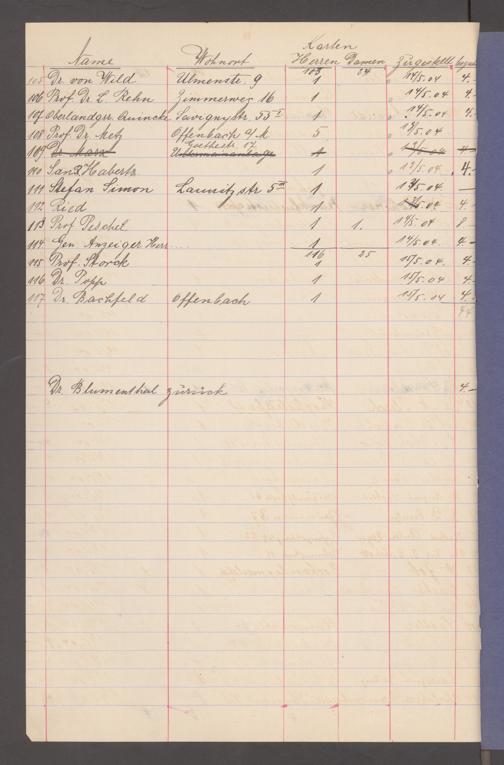 Karten
Name Wohnort Herren Damen Zugestellt
103 24
105 Dr. von Wild Ulmenstr. 9 1 14/5.04 4.
106 Prof. Dr. L. Rehn Zimmerweg 16 1 " 14/5.04 4.
107 Oberlandger. Quincke Savignystr. 55 1 " 14/5.04 4.
108 Prof. Dr. Metz Offenbach a/M. 5 " 13/5.04
Goethestr. 17
109 Dr. Marx 1 4
110 Habertz 1 " 13/5.04 4.
111 Stefan Simon Launitzstr 5 1 13/5.04 —
112 Ried 1 5.04 4
113 Prof Peschel 1 1. 14/5.04 8
114 Gen Anzeiger Herr.... 1 14/5.04 4 —
116 25
115 Prof. Storck 1 15/5.04. 4
116 Dr. Popp 1 15/5.04 4
117 Dr. Bachfeld Offenbach 1 15/5.04 4.
Dr. Blumenthal zurück 4. —